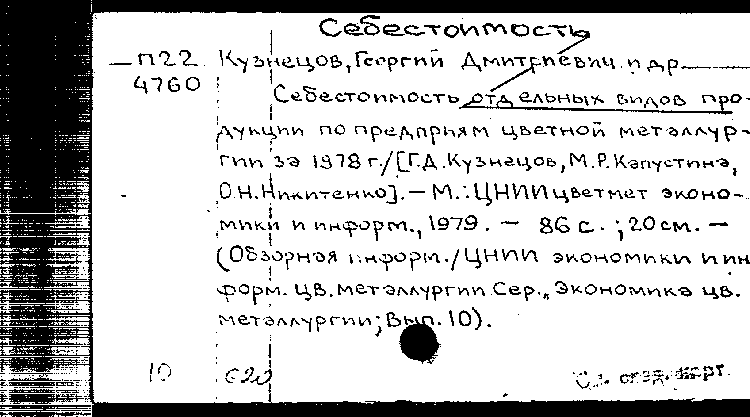 Себестоимость
П22 Кузнецов, Георгий Дмитриевич и др
4760 Себестоимость отдельных видов про-
дукции по предприям цветной металлур-
гии за 1978 г. /[Г.Д. Кузнецов, М.Р. Капустина,
О.Н. Никитенко]. — М.: ЦНИИцветмет эконо-
мики и информ., 1979. — 86 с. ; 20 см. —
(Обзорная информ. / ЦНИИ экономики и ин
форм. цв. металлургии. Сер., Экономика цв.
металлургии; Вып. 10).
10 620